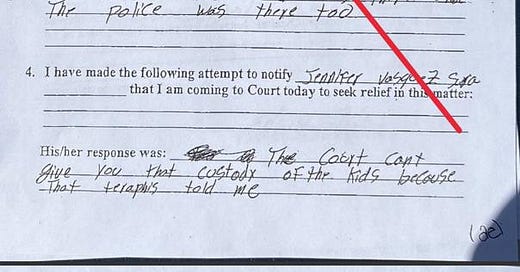 The police was there too
4. I have made the following attempt to notify Jennifer Vasquez Sura
that I am coming to Court today to seek relief in this matter:
His/her response was: The Court cant
give you that custody of the kids because
that teraphis told me
(ae)